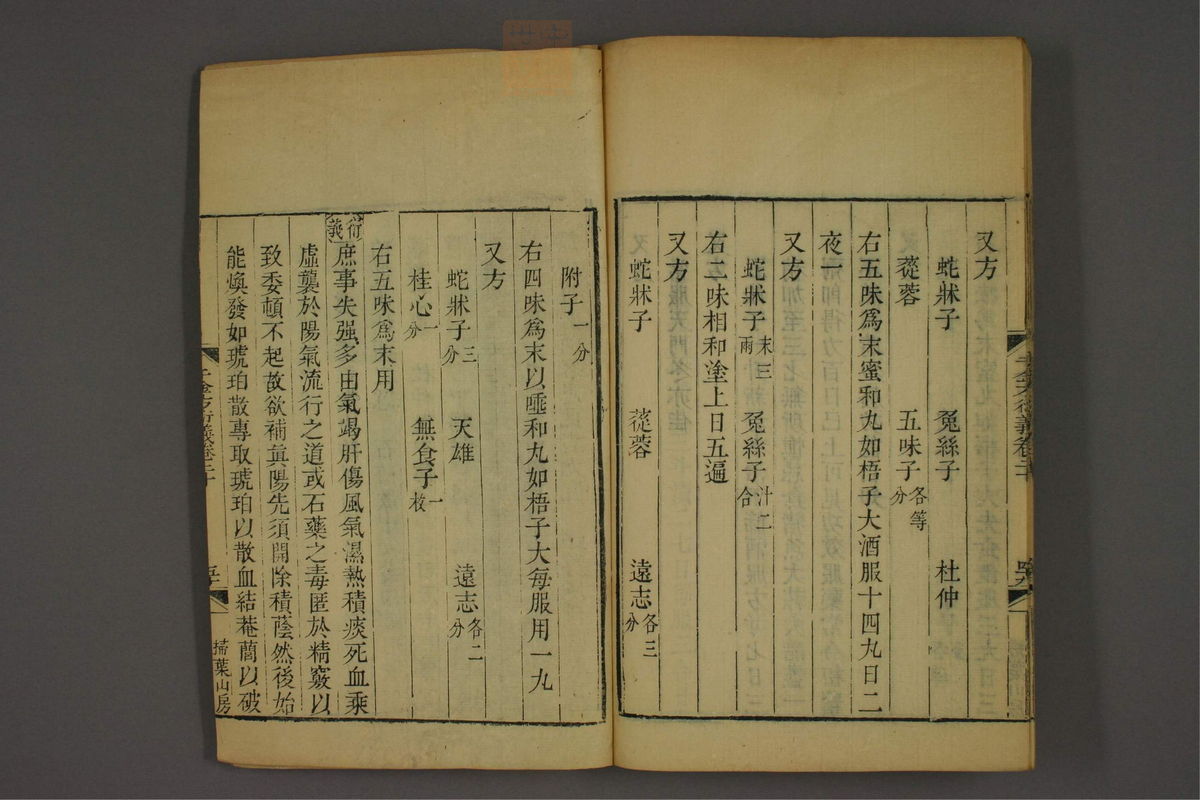 又方
蛇牀子 兔絲子 杜仲
蓯蓉 五味子各等分
右五味爲末蜜和丸如梧子大酒服十四丸日二
夜一
又方
蛇牀子末三兩 兔絲子汁二合
右二味相和塗上日五遍
又方
蛇牀子 蓯蓉 遠志各三分
附子一分
右四味爲末以唾和丸如梧子大每服用一丸
又方
蛇牀子三分 天雄 遠志各二分
桂心一分 無食子一枚
右五味爲末用
衍義 庶事失强多由氣竭肝傷風氣濕熱積痰死血乘
虛襲於陽氣流行之道或石藥之毒匿於精竅以
致委頓不起故欲補眞陽先須開除積蔭然後始
能煥發如琥珀散專取琥珀以散血結菴䕡以破
千金方衍義卷二十
掃葉山房